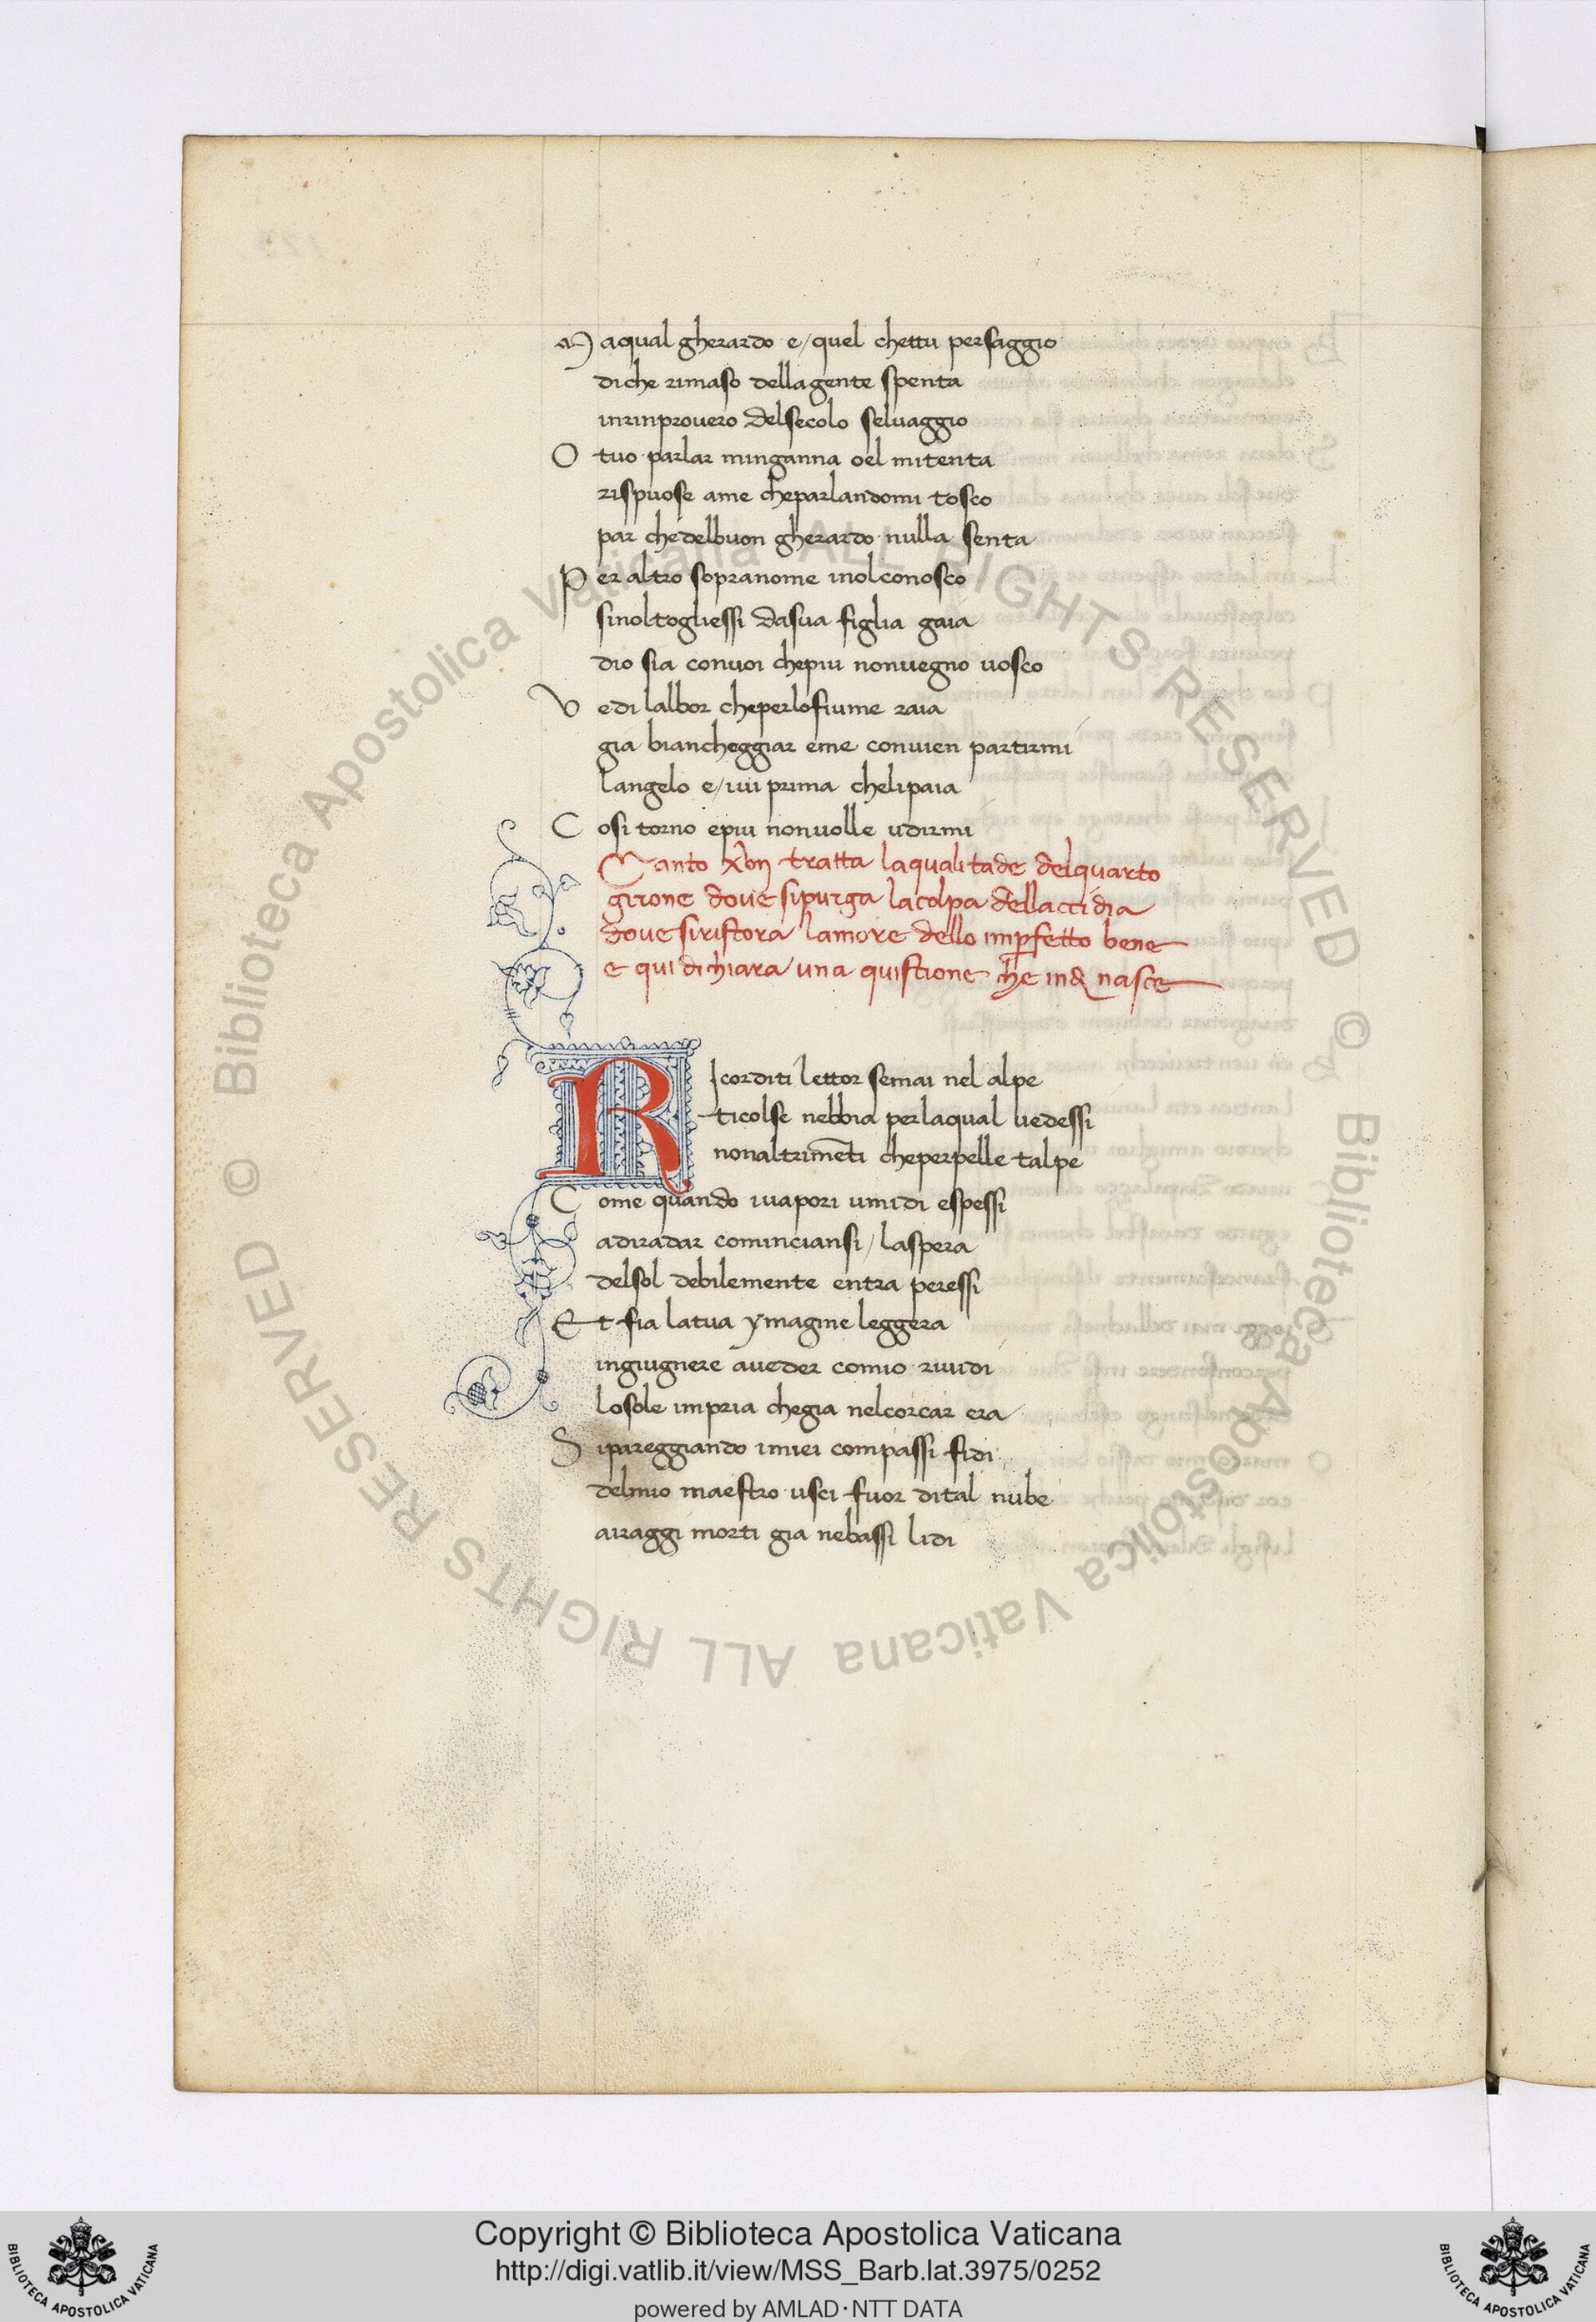 M aqual gherardo e/quel chettu persaggio
diche rimaso dellagente spenta
inrinprouero delsecolo seluaggio
O tuo parlar minganna oel mitenta
rispuose ame cheparlandomi tosco
par chedelbuon gherardo nulla senta
P er altro sopranome inolconosco
sinoltogliessi dasua figlia gaia
dio sia conuoi chepiu nonuegno uosco
V edi lalbor cheperlofiume raia
gia biancheggiar eme conuien partirmi
langelo e/iui prima chelipaia
C osi torno epiu nonuolle udirmi
Canto xvij tratta laqualitade delquarto
girone doue sipurga lacolpa dellaccidia
doue siristora lamore dello imperfetto bene
e qui dichiara una quistione che indi nasce
R Icorditi lettor semai nel alpe
ticolse nebbia perlaqual uedessi
nonaltrimēti cheperpelle talpe
C ome quando iuapori umidi espessi
adiradar cominciansi/laspera
delsol debilemente entra peressi
Et fia latua ymagine leggera
ingiugnere aueder comio riuidi
losole impria chegia nelcorcar era
S ipareggiando imiei compassi fidi
delmio maestro usci fuor dital nube
airaggi morti gia nebassi lidi
© Biblioteca Apostolica Vaticana ALL RIGHTS RESERVED © Biblioteca Apostolica Vaticana ALL RIGHTS RESERVED
Copyright © Biblioteca Apostolica Vaticana
http://digi.vatlib.it/view/MSS_Barb.lat.3975/0252
powered by AMLAD·NTT DATA
BIBLIOTECA APOSTOLICA VATICANA
BIBLIOTECA APOSTOLICA VATICANA